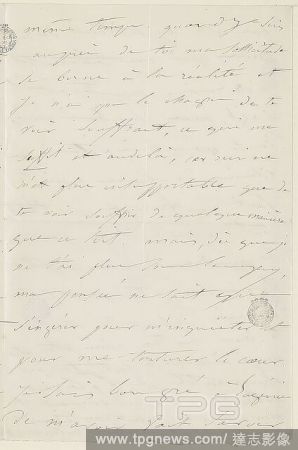 même temps quand je suis
auprès de toi ma sollicitude
se borne à la réalité et
je n'ai que le chagrin de te
voir souffrant, ce qui me
suffit et au delà, car rien ne
m'est plus insupportable que de
te voir souffrir de quelque manière
que ce soit mais, dès que je
ne t'ai plus sous les yeux,
ma pensée ne sait
s'ingérer pour m'inquiéter et
pour me torturer le cœur
je sais bon gré à Eugénie
de m'avoir fait
TPG
www.tpgnews.com/達志影像